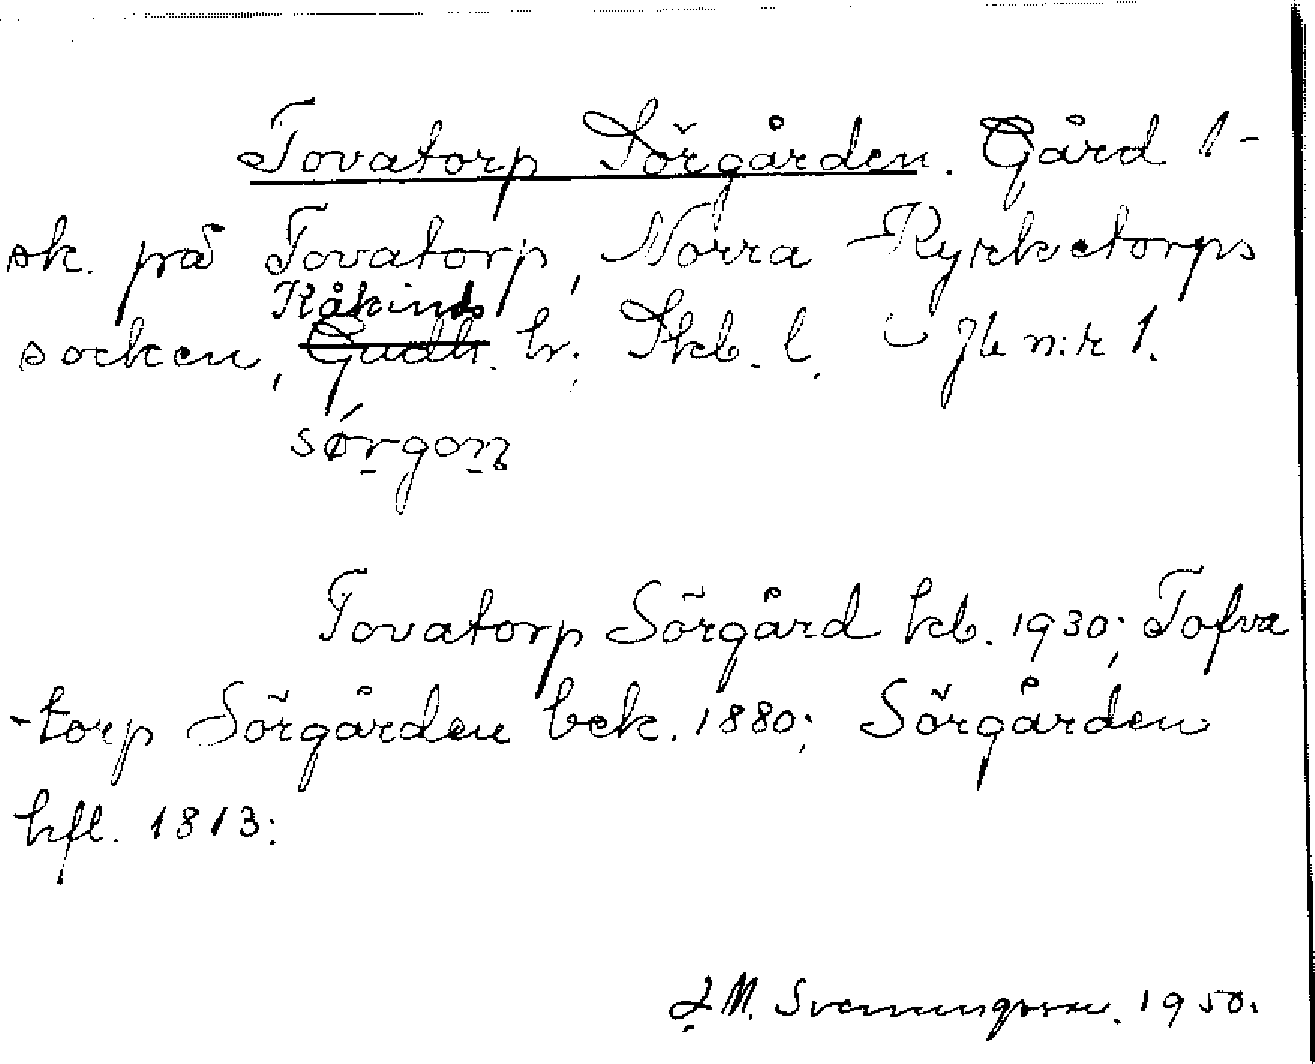 Tovatorp Sörgården. Gård 1-
sk. på Tovatorp, Norra Kyrketorps
Kåkinds
socken, Gudh. hr. Skb. l. Jb n:r 1.
sǿrgon
Tovatorp Sörgård kb. 1930; Tofva
-torp Sörgården bek. 1880; Sörgården
hfl. 1813:
M. Svenungsson. 1950.